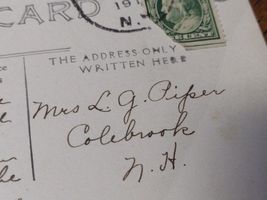 CARD
191
N.
THE ADDRESS ONLY
WRITTEN HERE
Mrs L. G. Piper
Colebrook
N. H.
the